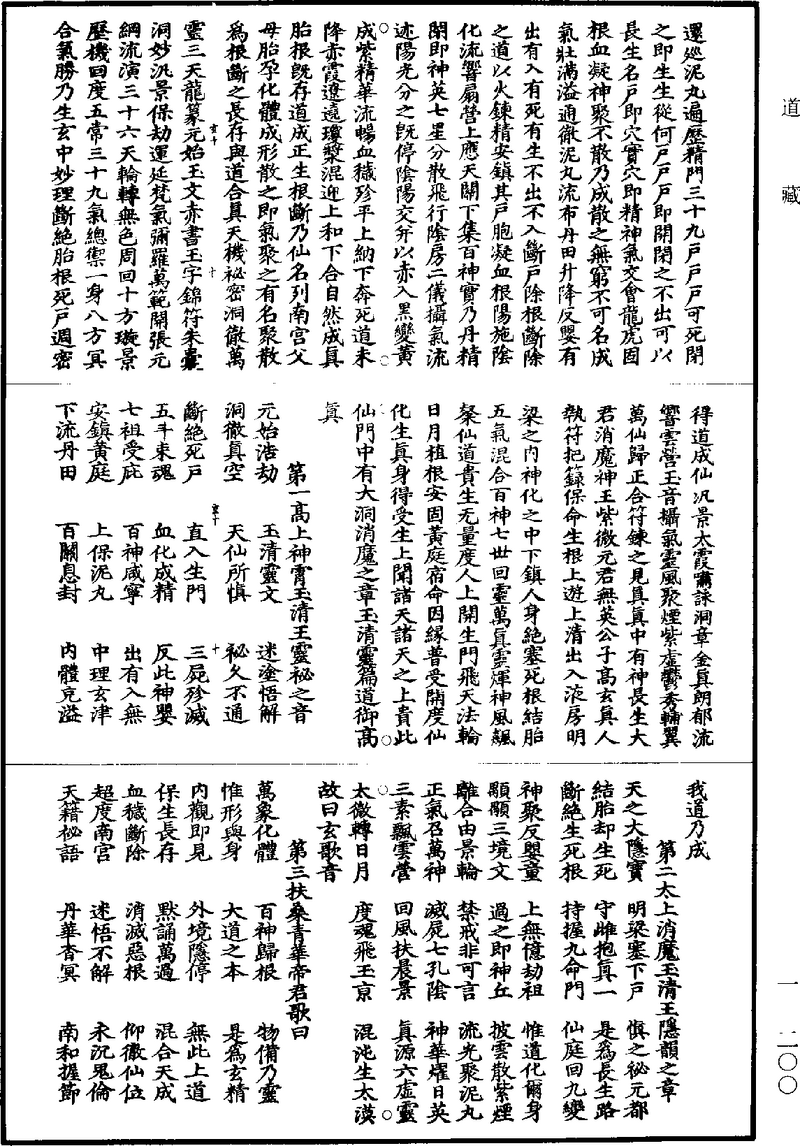 還廵泥丸遍歷精門三十九戶戶戶可死閉
之即生生從何戶戶戶即開閉之不出可以
長生名戶即穴實穴即精神氣交會龍虎固
根血凝神聚不散乃成散之無窮不可名成
氣壯滿溢通徹泥丸流布丹田升降反嬰有
出有入有死有生不出不入斷戶除根斷除
之道以火鍊精安鎮其戶胞凝血根陽施陰
化流響扇營上應天關下集百神寶乃丹精
閉即神英七星分散飛行陰房二儀攝氣流
述陽光分之旣停陰陽交并以赤入黑變黃
成紫精華流暢血穢殄平上納下奔死道未
降赤霞遼遠瓊槳混迎上和下合自然成真
胎根旣存道成正生根斷乃仙名列南宮父
母胎孕化體成形散之即氣聚之有名聚散
爲根斷之長存與道合真天機祕密洞徹萬
靈三天龍篆元始玉文赤書玉字錦符朱囊
洞妙汎景保劫運延梵氣彌羅萬範開張元
綱流演三十六天輪轉無色周回十方璇景
歷機回度五常三十九氣總禦一身八方冥
合氣勝乃生玄中妙理斷絕胎根死戶週密
得道成仙汎景太霞嘯詠洞章金真朗郁流
響雲營玉音攝氣靈風聚煙紫虛鬱秀輪翼
萬仙歸正合符鍊之見真真中有神長生大
君消魔神王紫微元君無英公子高玄真人
執符把籙保命生根上遊上清出入㳖房明
梁之內神化之中下鎮人身絕塞死根結胎
五氣混合百神七世回靈萬真雲煇神風飆
粲仙道貴生无量度人上開生門飛天法輪
日月植根安固黃庭宿命因緣普受開度仙
化生真身得受生上聞諸天諸天之上貴此
仙門中有大洞消魔之章玉清靈篇道御高
真
第一高上神霄玉清王靈祕之音
元始浩劫　玉清靈文　迷塗悟解
洞徹真空　天仙所慎　祕久不通
斷絕死戶　直入生門　三屍殄滅
五斗束魂　血化成精　反此神嬰
七祖受庇　百神咸寧　出有入無
安鎮黃庭　上保泥丸　中理玄津
下流丹田　百關息封　內體充溢
我道乃成
第二太上消魔玉清王隱韻之章
天之大隱寶　明梁塞下戶　慎之祕元都
結胎却生死　守雌抱真一　是爲長生路
斷絕生死根　持握九命門　仙庭回九變
神聚反嬰童　上無億劫祖　惟道化爾身
顒顒三境文　過之即神丘　披雲散紫煙
離合由景輪　禁戒非可言　流光聚泥丸
正氣召萬神　滅屍七孔陰　神華燿日英
三素飄雲營　回風扶晨景　真源六虛靈
太微轉日月　度魂飛玉京　混沌生太漠
故曰玄歌音
第三扶桑青華帝君歌曰
萬象化體　百神歸根　物備乃靈
惟形與身　大道之本　是爲玄精
內觀即見　外境隱停　無此上道
保生長存　默誦萬過　混合天成
血穢斷除　消滅惡根　仰徹仙位
超度南宮　迷悟不解　永沉鬼倫
天籍祕語　丹華杳冥　南和握節
道藏
一　二〇〇